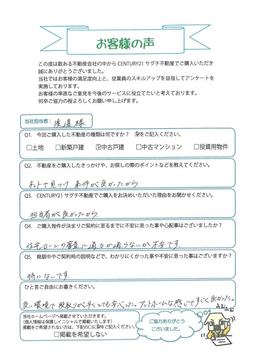 お客様の声
この度は数ある不動産会社の中からCENTURY21 サグチ不動産でご購入いただき
誠にありがとうございました。
当社ではお客様の満足度向上と、従業員のスキルアップを目指してアンケートを
実施しております。
お客様の率直なご意見を今後のサービスに役立てたいと考えております。
何卒ご協力の程よろしくお願い申し上げます。
当社担当者: 様
Q1. 今回ご購入した不動産の種類は何ですか? をご記入ください。
□土地 □新築戸建 ☑中古戸建 □中古マンション □投資用物件
Q2. 不動産をご購入したきっかけや、お探しの際のポイントなどを教えてください。
ネットで見つけ 条件が良かったから
Q3. CENTURY21 サグチ不動産でご購入をお決めいただいた理由をお聞かせください。
担当者が良かったから
Q4. ご購入物件が決まりご契約に至るまでに不安に思った事や心配事はございましたか?
住宅ローンの審査に通るか通らないか不安です
Q5. 発額中やご契約時の説明などで、わかりにくかった事や不安に思った事はございますか?
特になしです
ひと言ご自由にお書きください。
アットホームな感じですごく良かった。
当社ホームページへ掲載させていただきます。
(個人情報は保護しイニシャルで掲載します)
□掲載を希望しない
ご協力ありがとう
ございました。